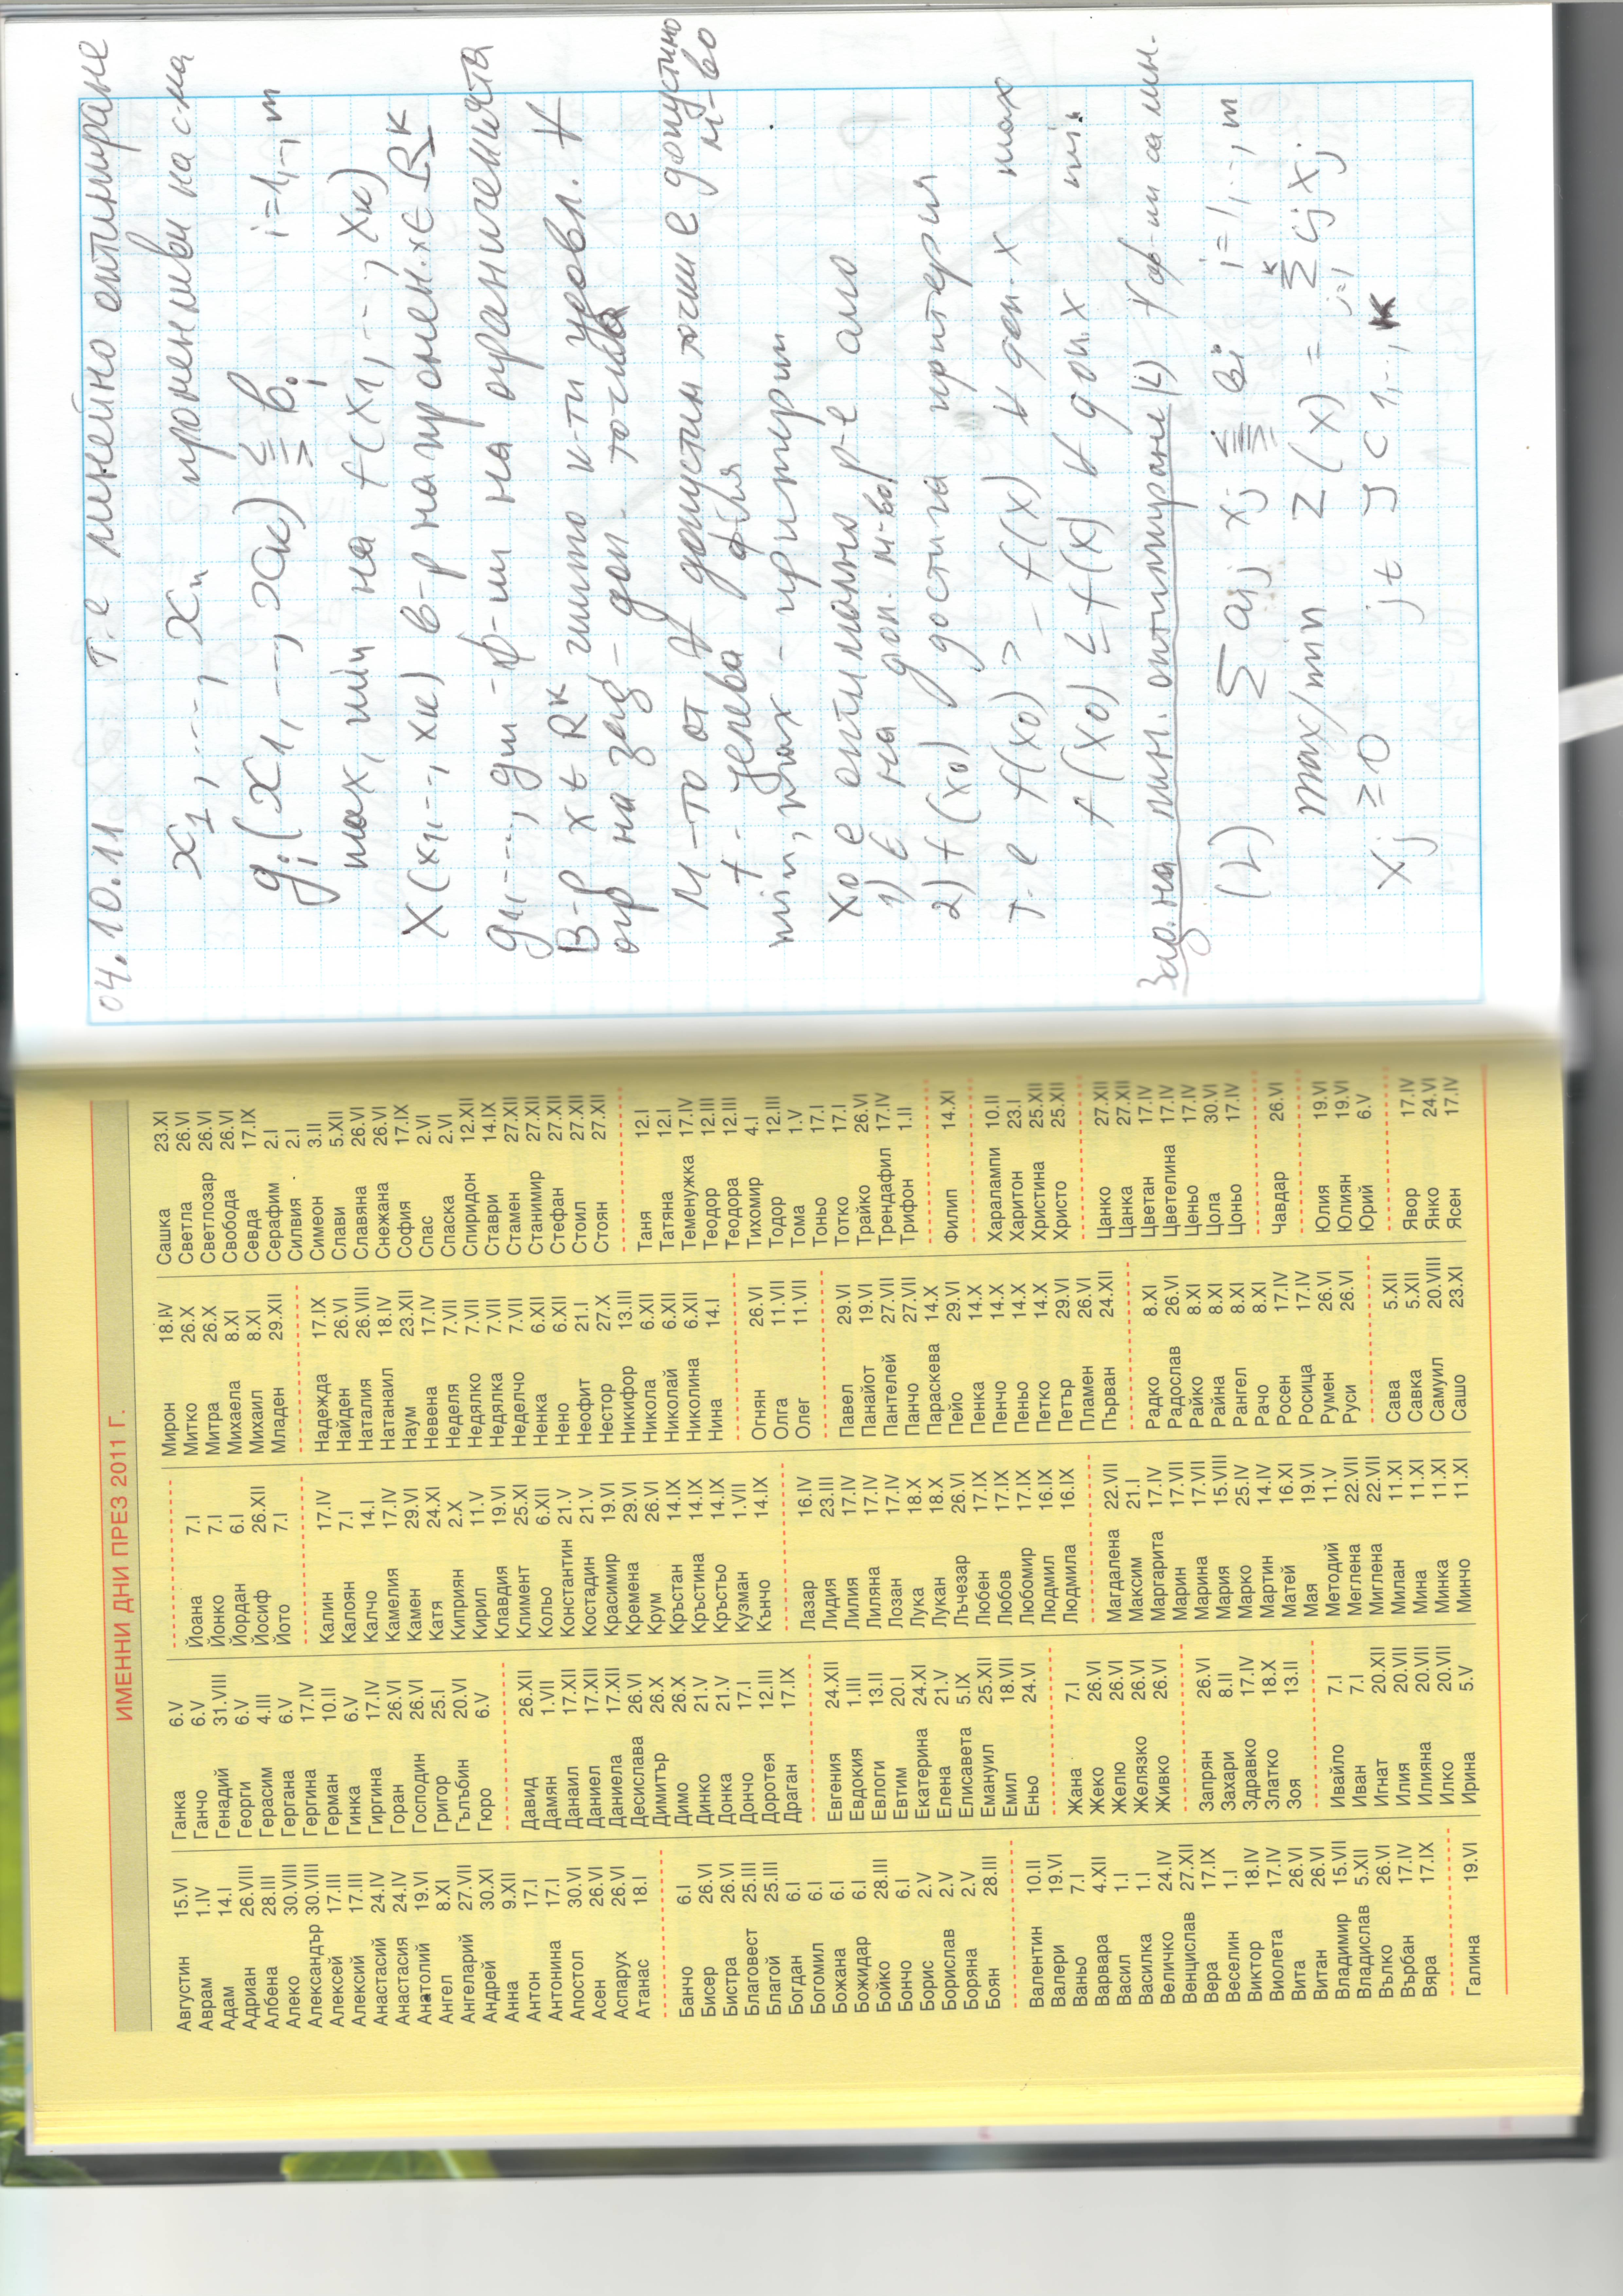 ИМЕННИ ДНИ ПРЕЗ 2011 Г.
Августин 15.VI
Аврам 1.IV
Адам 14.I
Адриан 26.VIII
Албена 28.III
Алеко 30.VIII
Александър 30.VIII
Алексей 17.III
Алексий 17.III
Анастасий 24.IV
Анастасия 24.IV
Анатолий 19.VI
Ангел 8.XI
Ангеларий 27.VII
Андрей 30.XI
Анна 9.XII
Антон 17.I
Антонина 17.I
Апостол 30.VI
Асен 26.VI
Аспарух 26.VI
Атанас 18.I
Банчо 6.I
Бисер 26.VI
Бистра 26.VI
Благовест 25.III
Благой 25.III
Богдан 6.I
Богомил 6.I
Божана 6.I
Божидар 6.I
Бойко 28.III
Бончо 6.I
Борис 2.V
Борислав 2.V
Боряна 2.V
Боян 28.III
Валентин 10.II
Валери 19.VI
Ваньо 7.I
Варвара 4.XII
Васил 1.I
Василка 1.I
Величко 24.IV
Венцислав 27.XII
Вера 17.IX
Веселин 1.I
Виктор 18.IV
Виолета 17.IV
Вита 26.VI
Витан 26.VI
Владимир 15.VII
Владислав 5.XII
Вълко 26.VI
Върбан 17.IV
Вяра 17.IX
Галина 19.VI
Ганка 6.V
Ганчо 6.V
Генадий 31.VIII
Георги 6.V
Герасим 4.III
Гергана 6.V
Гергина 17.IV
Герман 10.II
Гинка 6.V
Гиргина 17.IV
Горан 26.VI
Господин 26.VI
Григор 25.I
Гълъбин 20.VI
Гюро 6.V
Давид 26.XII
Дамян 1.VII
Данаил 17.XII
Даниел 17.XII
Даниела 17.XII
Десислава 26.VI
Димитър 26.X
Димо 26.X
Динко 21.V
Донка 21.V
Дончо 17.I
Доротея 12.III
Драган 17.IX
Евгения 24.XII
Евдокия 1.III
Евлоги 13.II
Евтим 20.I
Екатерина 24.XI
Елена 21.V
Елисавета 5.IX
Емануил 25.XII
Емил 18.VII
Еньо 24.VI
Жана 7.I
Жеко 26.VI
Желю 26.VI
Желязко 26.VI
Живко 26.VI
Запрян 26.VI
Захари 8.II
Здравко 17.IV
Златко 18.X
Зоя 13.II
Ивайло 7.I
Иван 7.I
Игнат 20.XII
Илия 20.VII
Илияна 20.VII
Илко 20.VII
Ирина 5.V
Йоана 7.I
Йонко 7.I
Йордан 6.I
Йосиф 26.XII
Йото 7.I
Калин 17.IV
Калоян 7.I
Калчо 14.I
Камелия 17.IV
Камен 29.VI
Катя 24.XI
Киприян 2.X
Кирил 11.V
Клавдия 19.VI
Климент 25.XI
Кольо 6.XII
Константин 21.V
Костадин 21.V
Красимир 19.VI
Кремена 29.VI
Крум 26.VI
Кръстан 14.IX
Кръстина 14.IX
Кръстьо 14.IX
Кузман 1.VII
Кънчо 14.IX
Лазар 16.IV
Лидия 23.III
Лилия 17.IV
Лиляна 17.IV
Лозан 17.IV
Лука 18.X
Лукан 18.X
Лъчезар 26.VI
Любен 17.IX
Любов 17.IX
Любомир 17.IX
Людмил 16.IX
Людмила 16.IX
Магдалена 22.VII
Максим 21.I
Маргарита 17.IV
Марин 17.VII
Марина 17.VII
Мария 15.VIII
Марко 25.IV
Мартин 14.IV
Матей 16.XI
Мая 19.VI
Методий 11.V
Меглена 22.VII
Миглена 22.VII
Милан 11.XI
Мина 11.XI
Минка 11.XI
Минчо 11.XI
Мирон 18.IV
Митко 26.X
Митра 26.X
Михаела 8.XI
Михаил 8.XI
Младен 29.XII
Надежда 17.IX
Найден 26.VI
Наталия 26.VIII
Натанаил 18.IV
Наум 23.XII
Невена 17.IV
Неделя 7.VII
Недялко 7.VII
Недялка 7.VII
Неделчо 7.VII
Ненка 6.XII
Нено 6.XII
Неофит 21.I
Нестор 27.X
Никифор 13.III
Никола 6.XII
Николай 6.XII
Николина 6.XII
Нина 14.I
Огнян 26.VI
Олга 11.VII
Олег 11.VII
Павел 29.VI
Панайот 19.VI
Пантелей 27.VII
Панчо 27.VII
Параскева 14.X
Пейо 29.VI
Пенка 14.X
Пенчо 14.X
Пеньо 14.X
Петко 14.X
Петър 29.VI
Пламен 26.VI
Първан 24.XII
Радко 8.XI
Радослав 26.VI
Райко 8.XI
Райна 8.XI
Рангел 8.XI
Рачо 8.XI
Росен 17.IV
Росица 17.IV
Румен 26.VI
Руси 26.VI
Сава 5.XII
Савка 5.XII
Самуил 20.VIII
Сашо 23.XI
Сашка 23.XI
Светла 26.VI
Светлозар 26.VI
Свобода 26.VI
Севда 17.IX
Серафим 2.I
Силвия 2.I
Симеон 3.II
Слави 5.XII
Славяна 26.VI
Снежана 26.VI
София 17.IX
Спас 2.VI
Спаска 2.VI
Спиридон 12.XII
Ставри 14.IX
Стамен 27.XII
Станимир 27.XII
Стефан 27.XII
Стоил 27.XII
Стоян 27.XII
Таня 12.I
Татяна 12.I
Теменужка 17.IV
Теодор 12.III
Теодора 12.III
Тихомир 4.I
Тодор 12.III
Тома 1.V
Тоньо 17.I
Тотко 17.I
Трайко 26.VI
Трендафил 17.IV
Трифон 1.II
Филип 14.XI
Харалампи 10.II
Харитон 23.I
Христина 25.XII
Христо 25.XII
Цанко 27.XII
Цанка 27.XII
Цветан 17.IV
Цветелина 17.IV
Ценьо 17.IV
Цола 30.VI
Цоньо 17.IV
Чавдар 26.VI
Юлия 19.VI
Юлиян 19.VI
Юрий 6.V
Явор 17.IV
Янко 24.VI
Ясен 17.IV
04.10.11 т.е линейно оптимиране
x1, ---, xn променливи на с-ма
gi(x1, ---, xк) ≤ = ≥ bi i=1,--, m
max, min на f(x1, --- , xк)
X(x1,--, xк) в-р на промен. x∈ Rк
g1, --, gm - ф-ии на ограниченията
В-р x ∈ Rк чиито к-ти удовл. ∀
огр на зад - доп. точка
М-то от ∀ допустим точки е допустимо м-во
f - целева ф-ия
min, max - критерии
X0 е оптимално р-е ако
1) ∈ на доп. м-во
2) f(x0) достига критерия
т. е f(x0) ≥ f(x) ∀ доп. x max
f(x0) ≤ f(x) ∀ доп. x min
Зад. на лин. оптимиране (L) ∀ ф-ии са лин.
(L) Σ aij xj ≤ = ≥ bi i=1,--, m
max/min Z(x) = Σ cj xj
xj ≥ 0 j ∈ J ⊂ 1,--, к